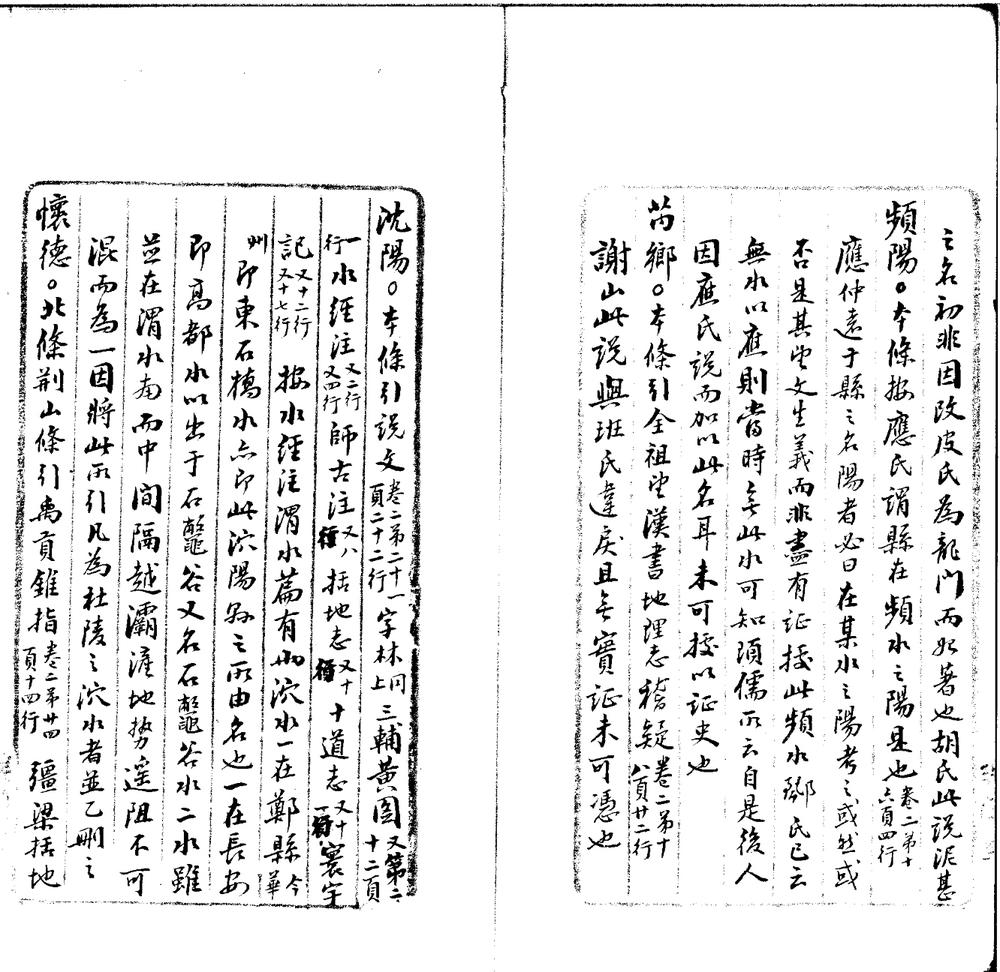 之名初非因改皮氏為龍門而始著也胡氏此說泥甚
頻陽○本條按應氏謂縣在頻水之陽是也卷二第十六頁四行
應仲遠于縣之名陽者必曰在某水之陽考之或然或
否是其望文生義而非盡有証據此頻水酈氏已云
無水以應則當時無此水可知顏儒所云自是後人
因應氏說而加以此名耳未可據以証史也
芮鄉○本條引全祖望漢書地理志稽疑卷二第十八頁廿二行
謝山此說與班氏違戾且無實証未可憑也
沈陽○本條引說文卷二第二十一頁二十二行字林同上三輔黃圖又第二十二頁
一行水經注又二行又四行師古注又八行括地志又十行十道志又十一行寰宇
記又十二行又十七行按水經注渭水篇有兩泬水一在鄭縣今華
州即東石橋水亦即此沈陽縣之所由名也一在長安
即高都水以出于石鼈谷又名石鼈谷水二水雖
並在渭水南而中間隔越灞滻地勢遥阻不可
混而為一因將此所引凡為杜陵之泬水者並乙刪之
懷德○北條荆山條引禹貢錐指卷二第廿四頁十四行彊梁括地